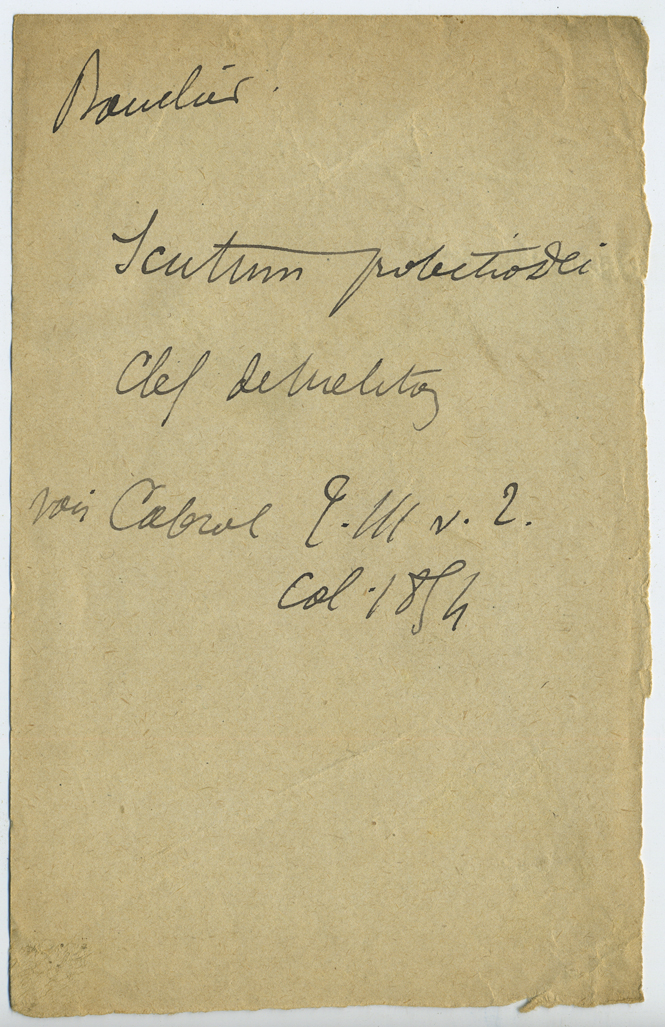 Bouclier.
Scutum protectio Dei
Clef de Meliton
voir Cabrol T. III v. 2.
col. 1854